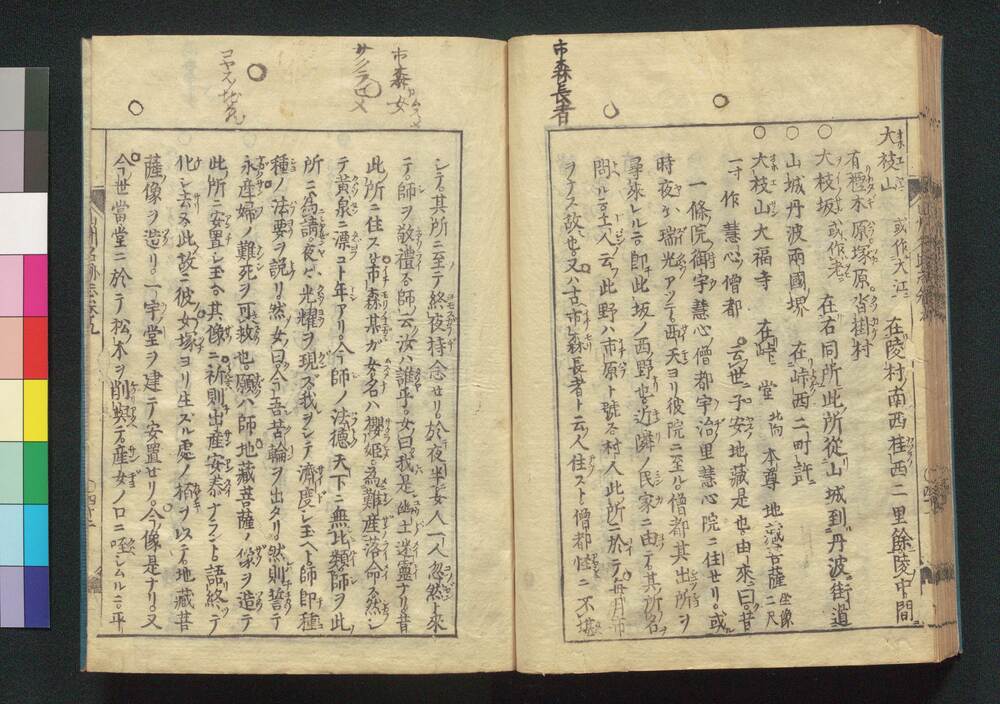 市森長者
大枝山 或作大江 在陵村南西桂西二里餘陵中間
有樫木原塚原沓掛村
○大枝坂 或作老 在右同所此所從山城到丹波街道
○山城丹波兩國堺 在峠西二町許
○大枝山大福寺 在峠 堂 北向 本尊 地藏菩薩 坐像二尺
一寸作 慧心僧都 云世子安地藏是也由來曰昔
一條院御宇慧心僧都宇治里慧心院ニ住セリ或
時夜々瑞光アツテ西天ヨリ彼院ニ至ル僧都其出所ヲ
尋來レルニ即此坂ノ西野也近隣ノ民家ニ由テ其所名
問ルニ土人云此野ハ市原ト號ス村人此所ニ於テ每月市
ヲナス故也又ハ古市森長者ト云人住スト僧都怪ニ不堪
市森女
サクラヒメ
コヤスノ地蔵
シテ其所ニ至テ終夜持念セリ於夜半女人一人忽然ト來
テ師ヲ敬禮ス師云汝ハ誰乎女曰我是幽土迷靈ナリ昔
此所ニ住スル市森某ガ女名ハ櫻姬為難産落命ス然シ
テ黄泉ニ漂コト年アリ今師ノ法德天下ニ無比類師ヲ此
所ニ為請夜々光耀ヲ現ス我ヲシテ濟度シ玉ヘト師即種
種ノ法要ヲ説リ然女曰今吾苦論ヲ出タリ然則誓テ
永産婦ノ難死ヲ可救也願ハ師地藏菩薩ノ像ヲ造テ
此所ニ安置シ玉ヘ其像ニ祈則出産安泰ナラント語終テ
化シ去ヌ此故ニ彼女塚ヨリ生ズル處ノ栢ヲ以テ地藏菩
薩像ヲ造リ一宇堂ヲ建テ安置セリ今像是ナリ又
今世當堂ニ於テ松木ヲ削與ヘ産女ノ口ニ咥シムルニ平